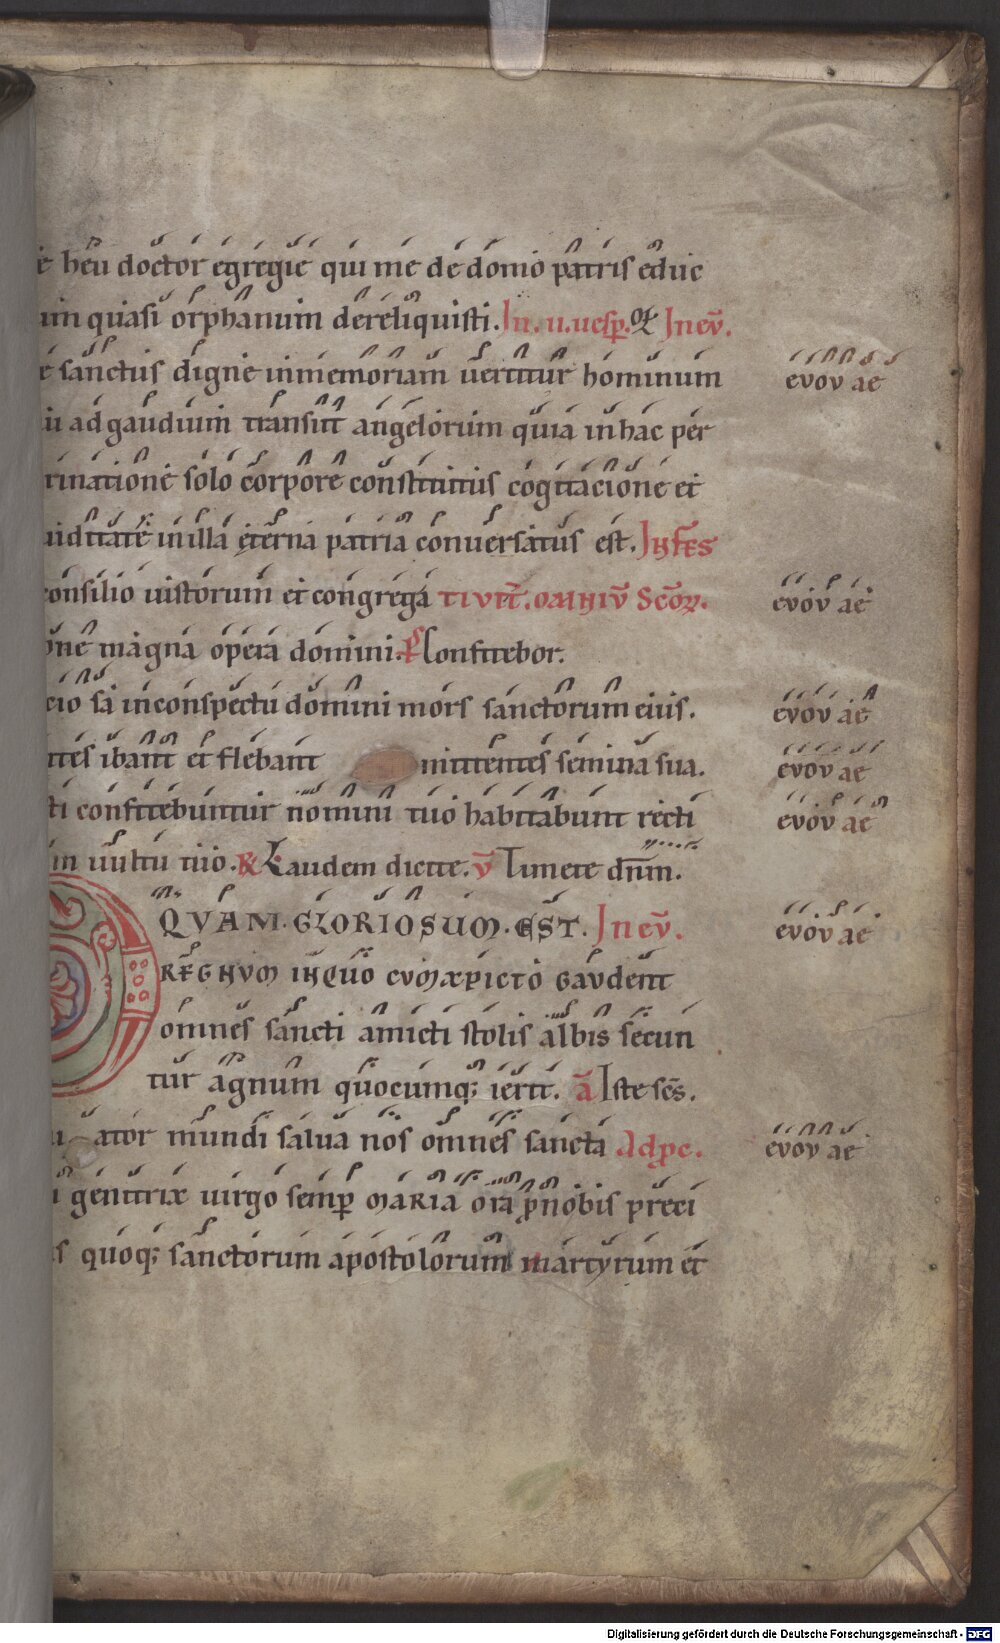 e heu doctor egregie qui me de domo patris educ
um quasi orphanum dereliquisti. In .ii. uesp̄. et In ev̄.
e sanctus digne inmemoriam uertitur hominum evov ae
ui ad gaudium transiit angelorum quia in hac per
rinatione solo corpore constitutus cogitacione et
uiditate in illa eterna patria conuersatus est. In fes
consilio iustorum et congrega tiuit. omniv̄ Scōꝝ. evov ae
one magna opera domini. Ps Confitebor.
cio sa in conspectu domini mors sanctorum eius. evov ae
ntes ibant et flebant mittentes semina sua. evov ae
ti confitebuntur nomini tuo habitabunt recti evov ae
m uultu tuo. R Laudem dicite. v̄ Timete dn̄m.
O QVAM GLORIOSUM EST. In ev̄. evov ae
REGNVM IN QUO cvm xpicto gavdent
omnes sancti amicti stolis albis secun
tur agnum quocumq; ierit. ā Iste sc̄s.
u ator mundi salua nos omnes sancta Ad p̄c. evov ae
i genitrix uirgo semp̄ maria ora p̱ nobis preci
s quoq; sanctorum apostolorum martyrum et
Digitalisierung gefördert durch die Deutsche Forschungsgemeinschaft - DFG